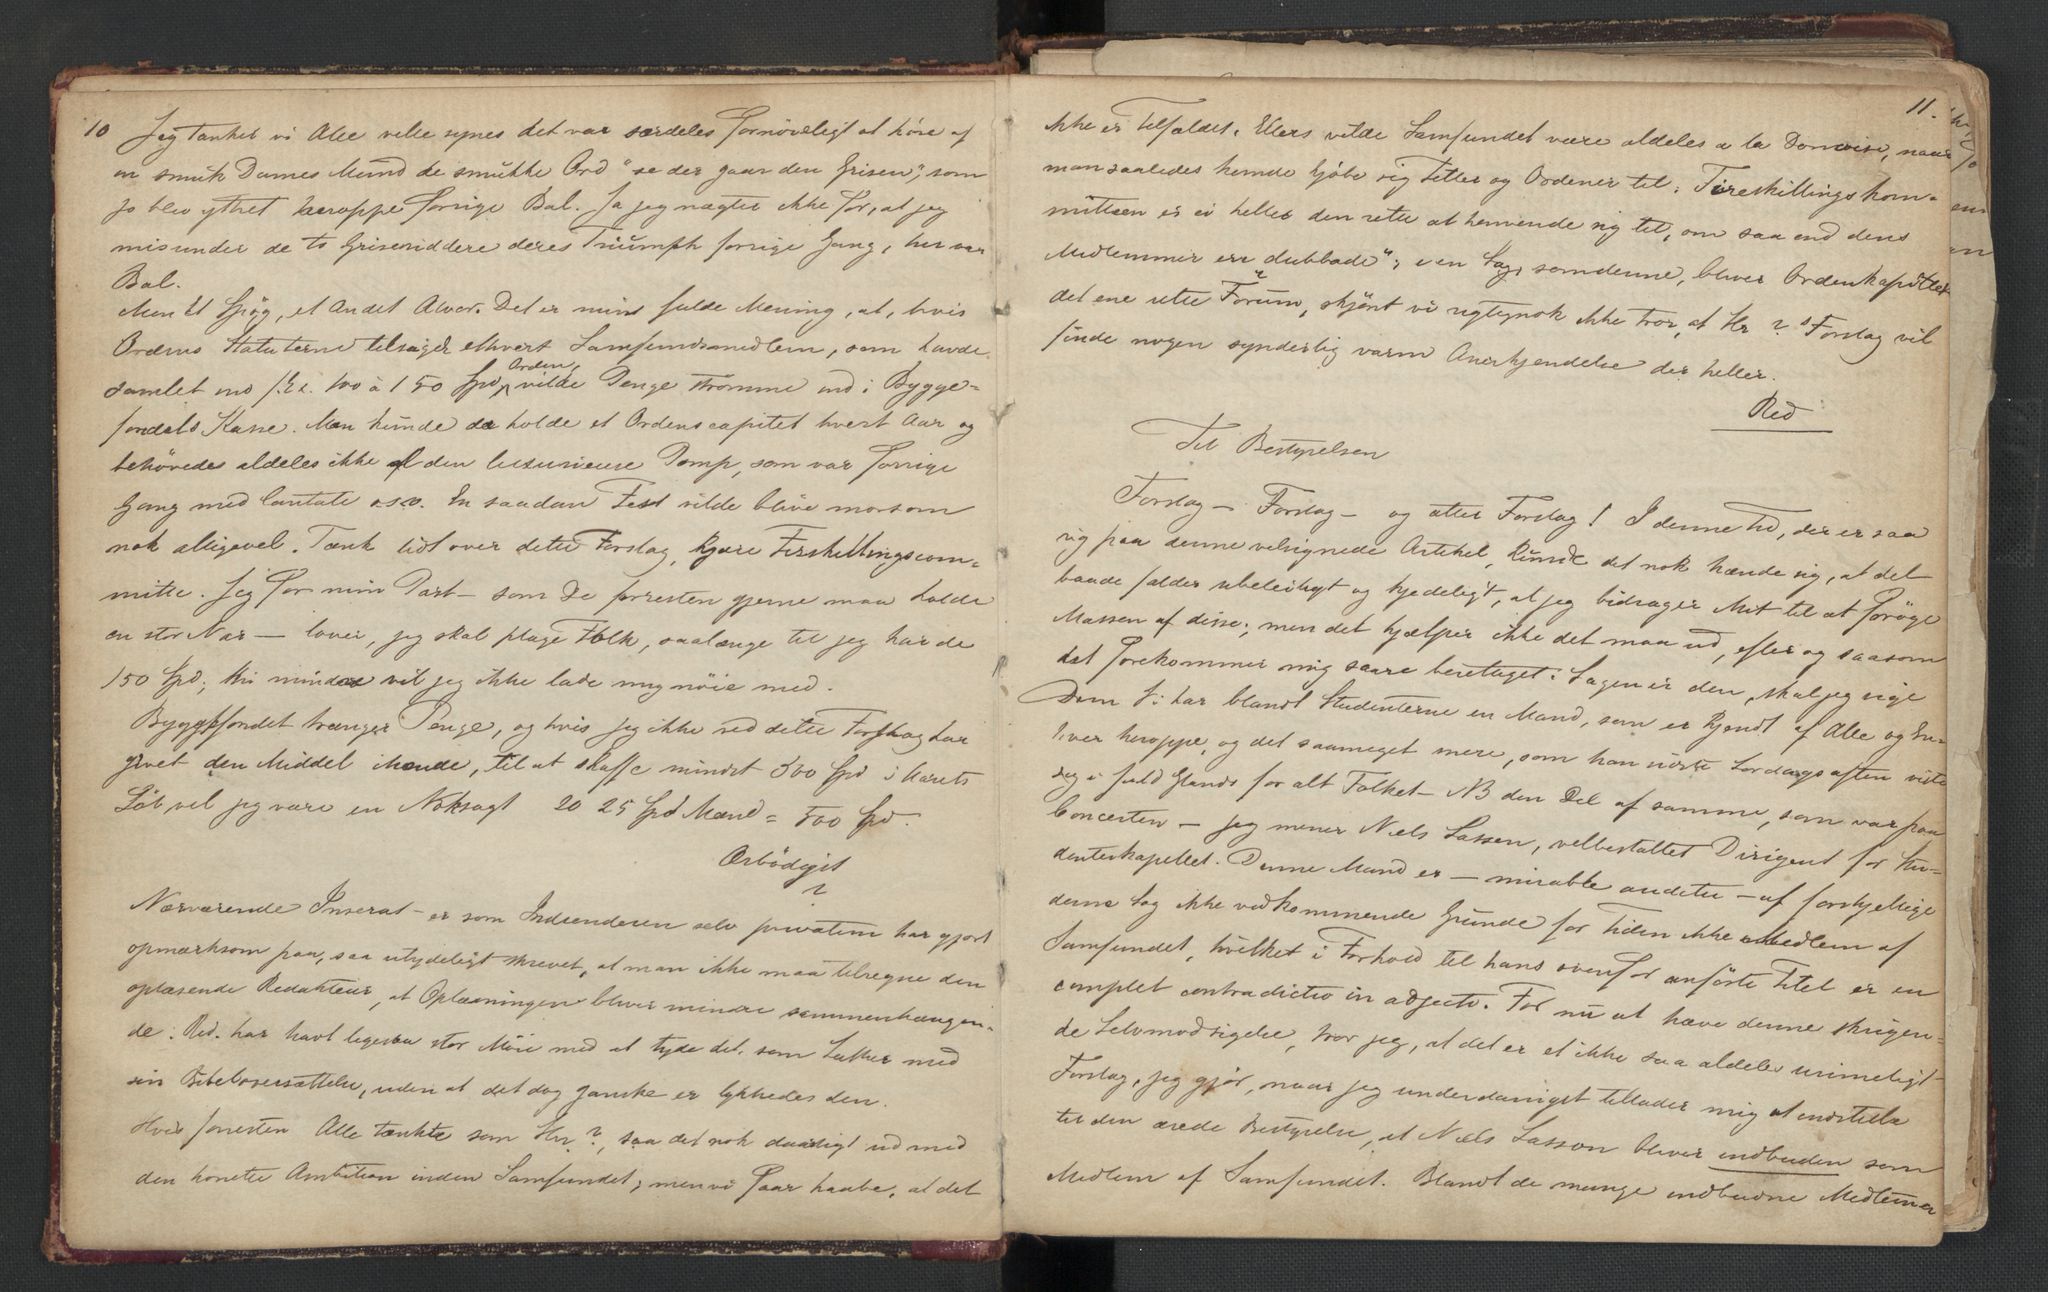 10 Jeg tænker vi Alle ville synes det var særdeles fornöieligt at höre af
en smuk Dames Mund de smukke Ord "se der gaar den Grisen", som
jo blev ythret heroppe forrige Bal. Ja jeg nægter ikke for, at jeg
misunder de to Griseriddere deres Triumph forrige Gang, her var
Bal.
Men Et Spög, et Andet Alvor. Det er min fulde Mening, at, hvis
Ordens Statuterne tilsiger ethvert Samfundsmedlem, som havde
samlet ind f. Ex. 100 à 150 Spd, Orden, vilde Penge strømme ind i Bygge-
fondets Kasse. Man kunde da holde et Ordenscapitel hvert Aar og
behövedes aldeles ikke al den luxurieuse Pomp, som var forrige
Gang med Cantate o.s.v. En saadan Fest vilde blive morsom
nok alligevel. Tænk lidt over dette Forslag, kjære Firskillingscom-
mitte. Jeg for min Part – som De forresten gjerne maa holde
en stor Nar – lover, jeg skal plage Folk, saalænge til jeg har de
150 Spd; thi mindre vil jeg ikke lade mig nöie med.
Byggefondet trænger Penge, og hvis jeg ikke ved dette Forslag har
givet den Middel ihænde, til at skaffe mindst 500 Spd i Aarets
Löb, vil jeg være en Noksagt 20 25 Spd Mænd = 500 Spd.
Ærbödigst
?
Nærværende Inserat – er som Indsenderen selv privatim har gjort
opmærksom paa, saa utydeligt skrevet, at man ikke maa tilregne den
oplæsende Redakteur, at Oplæsningen bliver mindre sammenhængen-
de. Red. har havt ligesaa stor Möie med at tyde det, som Luther med
sin Bibeloversættelse, uden at det dog ganske er lykkedes den.
Hvis forresten Alle tænkte som Hr ?, saa det nok daarligt ud med
den honette Ambition inden Samfundet; men vi faar haabe, at det
11.
ikke er Tilfældet. Ellers vilde Samfundet være aldeles a la, naar
man saaledes kunde kjöbe sig Titler og Ordener til. Fireskillingskom-
mitteen er ei heller den rette at henvende sig til, om saa end dens
Medlemmer ere „dubbade"; i en Sag, som denne, bliver Ordenkapitlet
det ene rette Forum, skjönt vi rigtignok ikke tror, at Hr ?s Forslag vil
finde nogen synderlig varm Anerkjendelse der heller.
Red
Til Bestyrelsen
Forslag – Forslag – og atter Forslag! I denne Tid, der er saa
rig paa denne velsignede Artikel, kunde det nok hænde sig, at det
baade falder ubeleiligt og kjedeligt, at jeg bidrager Mit til at foröge
Massen af disse; men det hjælper ikke det maa ud, efter og saasom
det forekommer mig saare berettiget. Sagen er den, skal jeg sige
Dem Vi har blandt Studenterne en Mand, som er kjendt af Alle og En-
hver heroppe, og det saameget mere, som han sidste Lordagsaften viste
sig i fuld Glands for alt Folket – NB den Del af samme, som var paa
Concerten – jeg mener Niels Lassen, velbestaltet Dirigent for Stu-
denterkapellet. Denne Mand er – mirable auditu – af forskjellige
denne Sag ikke vedkommende Grunde for Tiden ikke Medlem af
Samfundet, hvilket i Forhold til hans ovenfor anförte Titel er en
complet contradictio in adjecto. For nu at hæve denne skrigen-
de Selvmodsigelse, tror jeg, at det er et ikke saa aldeles urimeligt
Forslag, jeg gjör, naar jeg underdanigst tillader mig at indstille
til den ærede Bestyrelse, at Niels Lasson bliver indbuden som
Medlem af Samfundet. Blandt de mange indbudne Medlemer